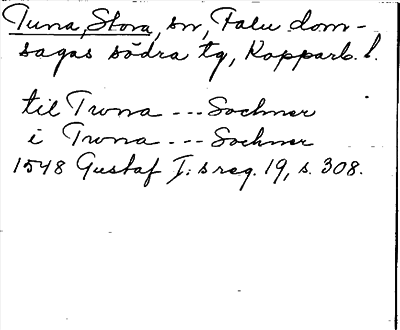 Tuna, Stora, sn, Falu dom-
sagas södra tg, Kopparb. l.
til Twna --- Sochner
i Twna --- Sochner
1548 Gustaf I:s reg. 19, s. 308.